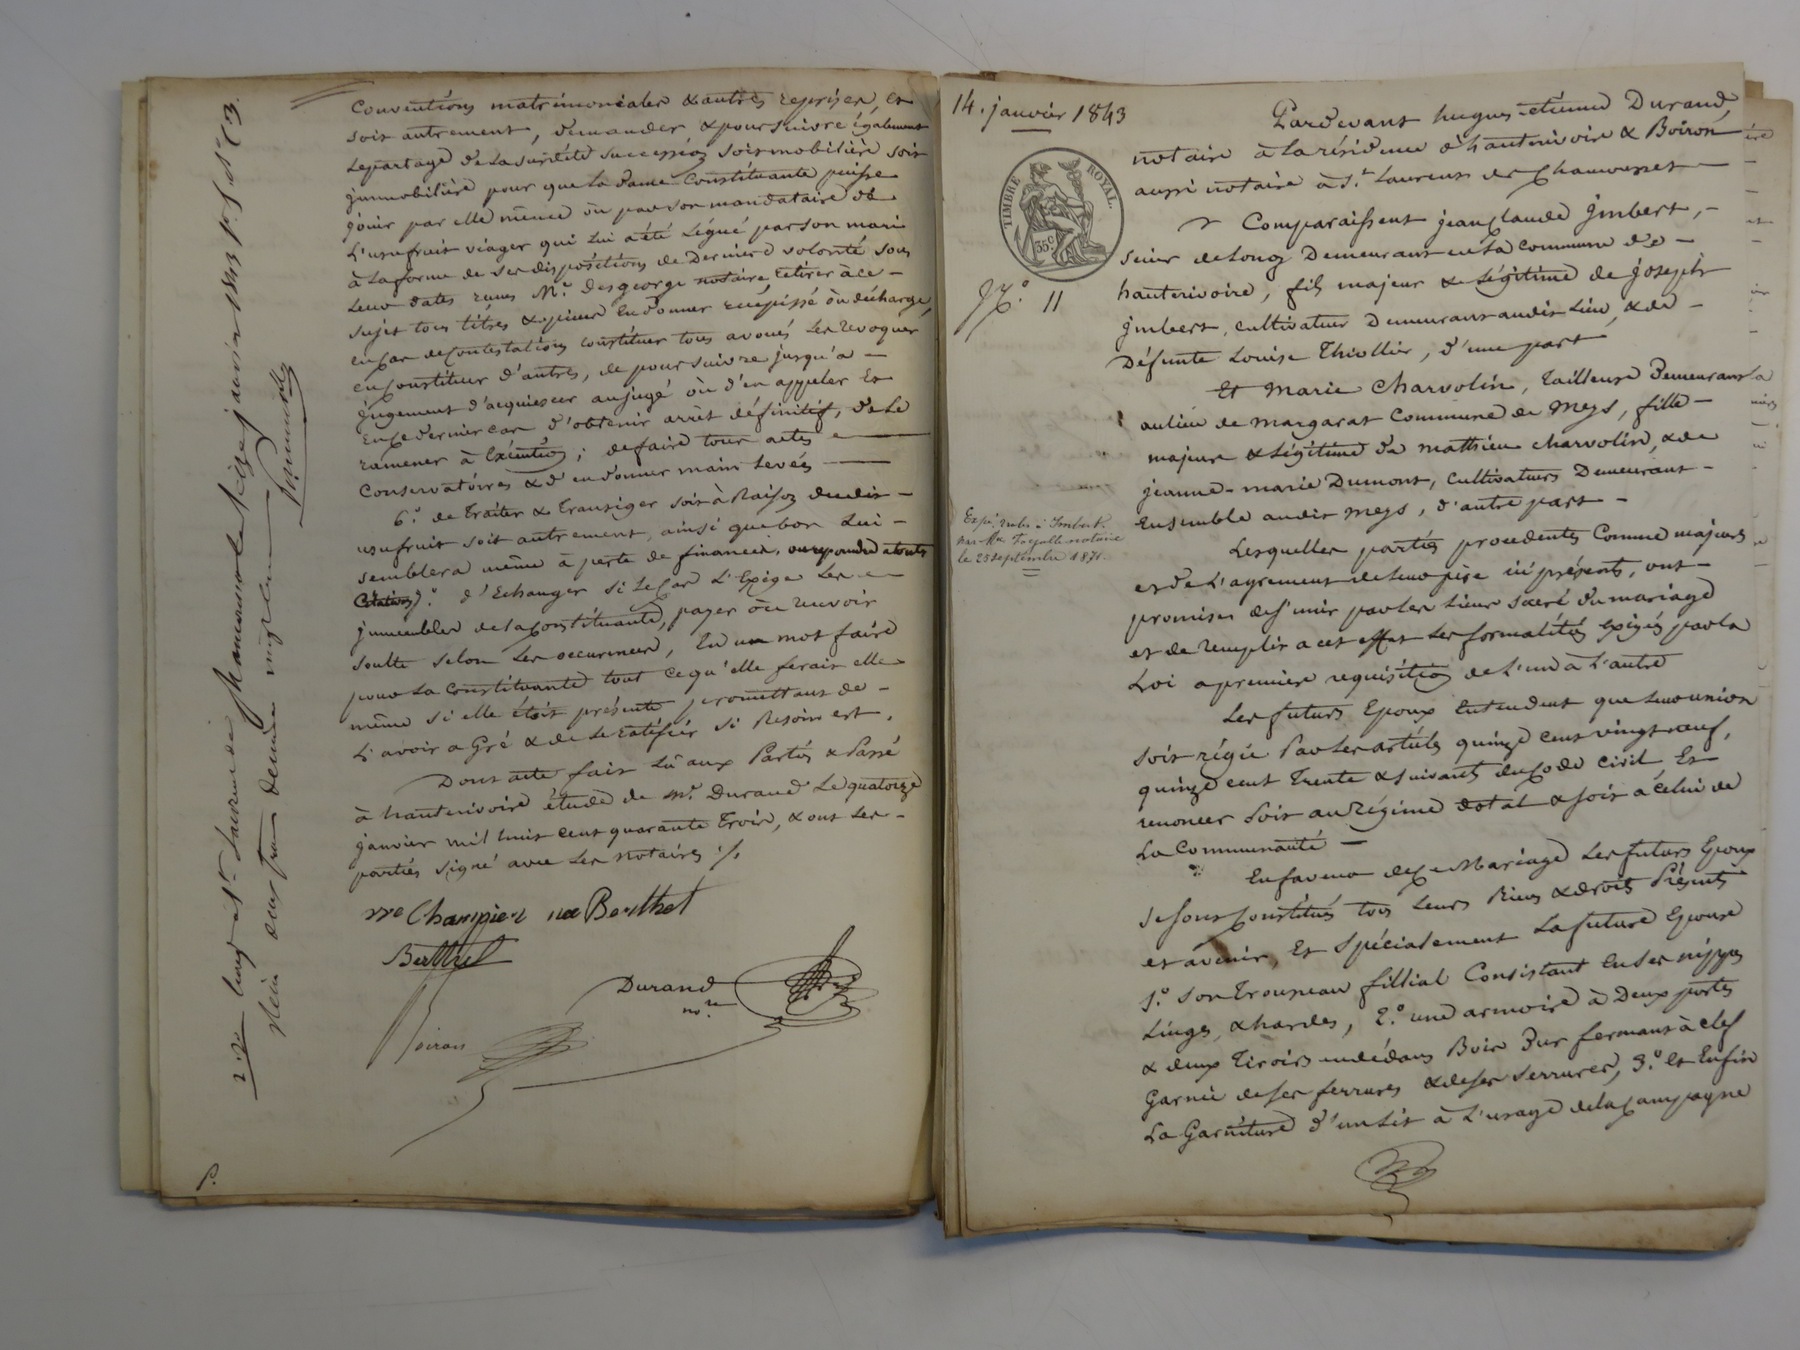 Conventions matrimoniales & autres reprises, et
soit autrement, demander & poursuivre également
le partage de la susdite succession soit mobilière soit
jmmobilière pour que la dame Constituante puisse
jouir par elle même ou par son mandataire de
L'usufruit viager qui lui a été Légué par son mari
à la forme de ses dispositions de Dernière volonté sous
Leur dates reçues Me Desgeorge notaire, retirer à ce
sujet tous titres & pièces En donner récépissé ou décharge,
en cas de contestations constituer tous avoués Les revoquer
en constituer d'autres, de poursuivre jusqu'a
jugement d'acquiescer au jugé ou d'en appeler Et
En ce dernier cas d'obtenir arrêt définitif, de Le
ramener à Exécution ; de faire tous actes
Conservatoires & d'en donner main Levée
6.° de Traiter & Transiger soit à Raison dudit
usufruit soit autrement, ainsi que bon Lui
semblera même à perte de finances, ou repondre à toutes
Citations 7.° d'Echanger si Le Cas L'Exige Les
jmmeubles de la Constituante, payer ou recevoir
soulte selon Les occurences, En un mot faire
pour La Constituante tout ce qu'elle ferait elle
même si elle étoit présente promettant de
L'avoir a Gré & de Le Ratifier si Besoin est.
Dont acte fait Lû aux Parties & Passé
à hauterivoire étude de Me Durand Le quatorze
janvier mil huit cent quarante Trois, & ont Les
parties signé avec Les Notaires ./.
vve Champier née Berthet
Berthet
Durand
no.re
Boiron
P.
14. janvier 1843
TIMBRE ROYAL.
35c
N.° 11
Expé. delée à Imbert
par Me Fayolle notaire
le 25 septembre 1871.
Pardevant hugues-étienne Durand,
notaire à la résidence d'hauterivoire & Boiron
aussi notaire à St Laurent de Chamousset
Comparaissent jean Claude jmbert,
scieur de Long Demeurant en La Commune d'
hauterivoire, fils majeur & Légitime de joseph
jmbert, cultivateur Demeurant audit Lieu, & de
Défunte Louise Thiollier, d'une part
Et Marie Charvolin, Tailleuse Demeurant
au Lieu de margarat Commune de Meys, fille
majeure & Légitime de mathieu charvolin, & de
jeanne-marie Dumont, Cultivateurs Demeurant
Ensemble audit Meys, d'autre part
Lesquelles parties procedentes Comme majeures
et de L'agrement de Leur père ici présents, ont
promises de s'unir par Les Liens sacré du mariage
et de remplir a cet effet Les formalités exigées par la
Loi a premiere requisition de L'un à L'autre
Les futurs Epoux Entendent que Leur union
soit régie Par Les articles quinze cent vingt neuf,
quinze cent Trente & suivants du Code Civil Et
renoncer soit au Régime dotal & soit à celui de
La Communauté
En faveur de Ce Mariage Les futurs Epoux
se sont Constitués tous Leurs Biens & droits Présents
et avenir, Et spécialement La future Epouse
1.° son Trousseau fillial Consistant En ses nippes
Linges & hardes, 2.° une armoire à Deux portes
& deux Tiroirs en dedans Bois Dur fermant à clef
Garnie de ses ferrures & de ses serrures, 3.° et Enfin
La Garniture d'un Lit à L'usage de la Campagne